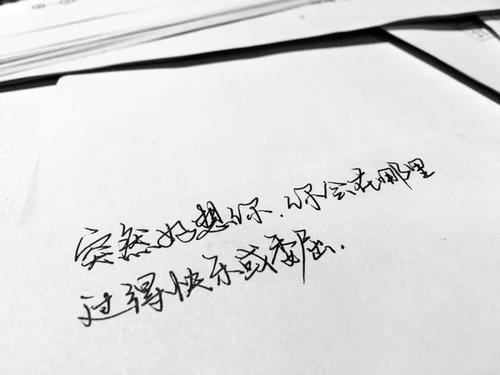 突然好想你.你会在哪里
过得快乐或委屈.